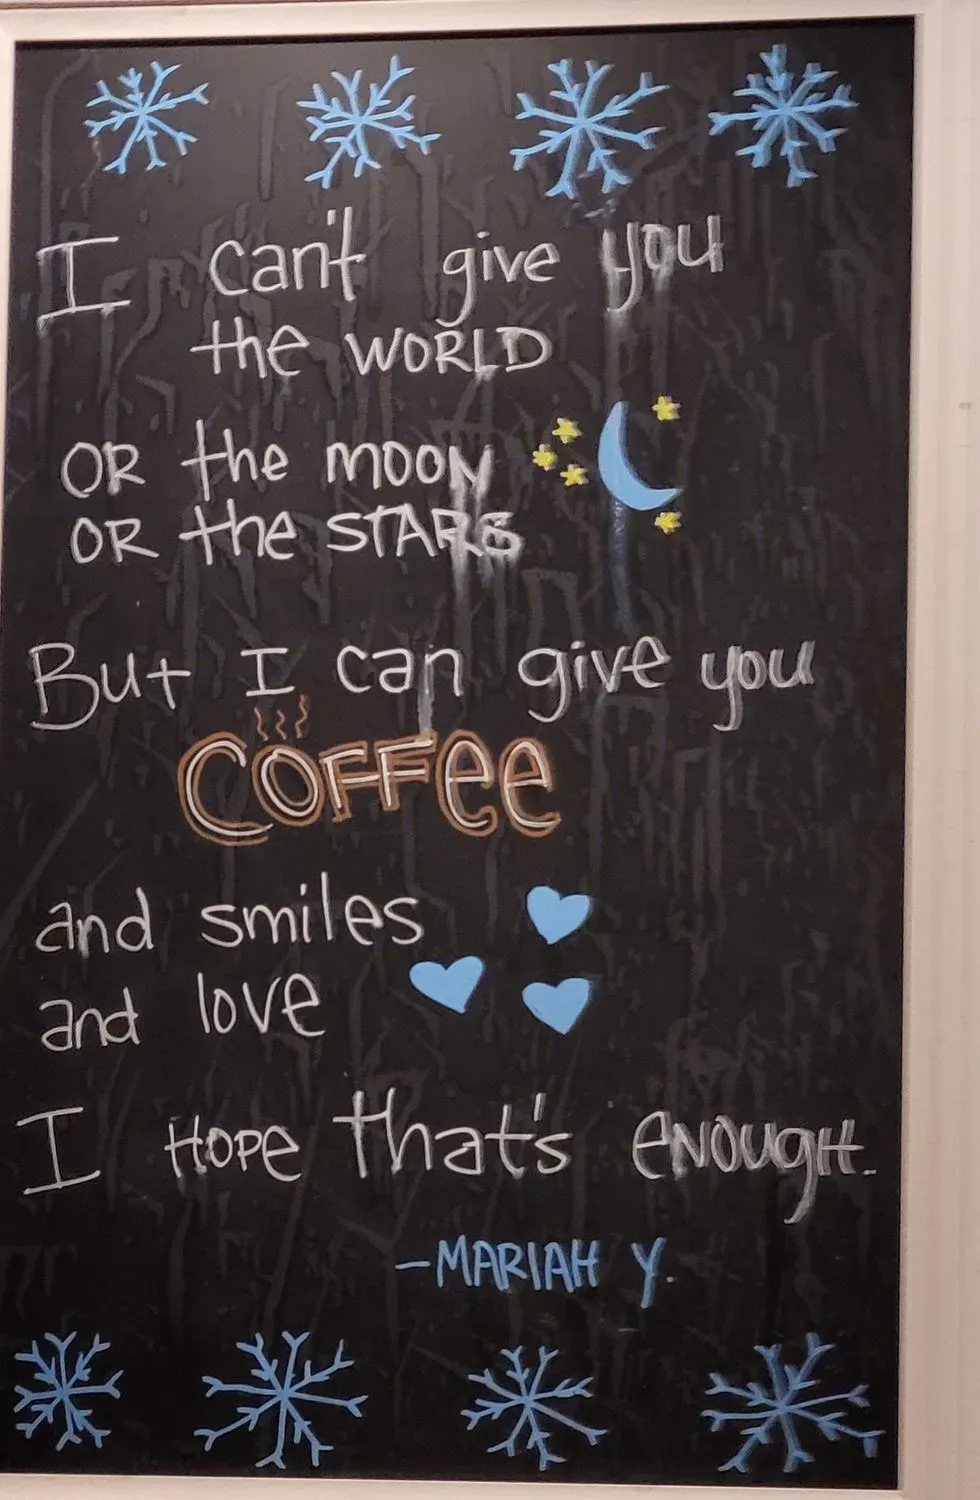 I can't give you
the WORLD
OR the MOON
OR the STARS
But I can give you
COFFee
and smiles
and love
I HOPe that's eNOUgH.
-MARIAH Y.